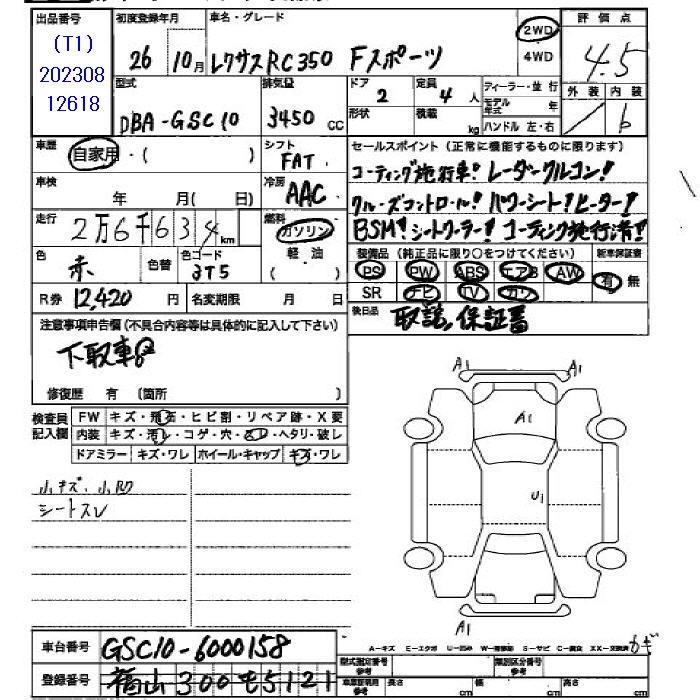 出品番号
(T1)
202308
12618
初度登録年月
26 10月
車名・グレード
レクサスRC350 Fスポーツ
2WD
4WD
評価点
4.5
外装 内装
/ b
型式
DBA-GSC10
排気量
3450 CC
ドア
2
定員
4 人
形状
積載
kg
ディーラー・並行
モデル年式 年
ハンドル 左・右
車歴
自家用・( )
シフト
FAT
車検
年 月( 日)
冷房
AAC
走行
2万6千634 km
燃料
ガソリン
軽油
( )
色
赤
色替
色コード
3T5
R券 12,420 円
名変期限 月 日
セールスポイント(正常に機能するものに限ります)
コーティング施行車! レーダークルコン!
クルーズコントロール! パワーシート!ヒーター!
BSM! シートクーラー! コーティング施行済!
装備品(純正品に限り○をつけてください)
新車保証書
PS PW ABS エアB AW
有 無
SR ナビ TV カワ
後日品
取説, 保証書
注意事項申告欄(不具合内容等は具体的に記入して下さい)
下取車
修復歴 有 (箇所 )
検査員記入欄
FW キズ・飛石・ヒビ割・リペア跡・X要
内装 キズ・汚レ・コゲ・穴・スレ・ヘタリ・破レ
ドアミラー キズ・ワレ ホイール・キャップ キズ・ワレ
小キズ、小凹
シートスレ
A1 A1
A1
U1
A1
車台番号 GSC10-6000158
登録番号 福山 300 も5121
A-キズ E-エクボ U-凹み W-補修跡 S-サビ C-腐食 XX-交換済
カギ
型式指定番号
参考
類別区分番号
参考
車庫証明用
参考
長さ cm
幅 cm
高さ cm